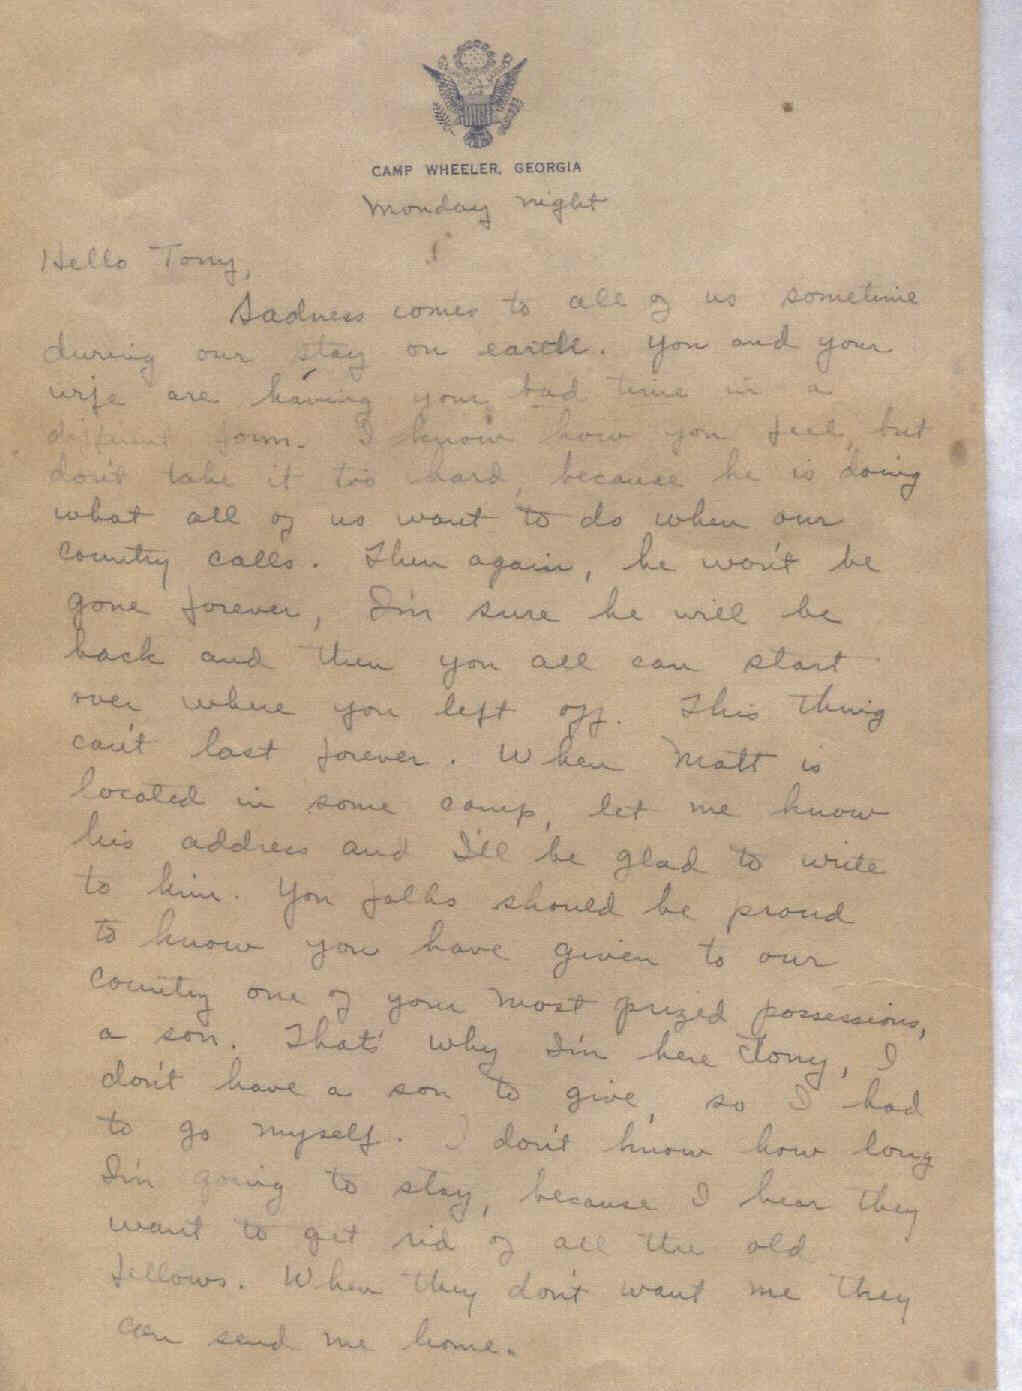 CAMP WHEELER, GEORGIA
Monday night
Hello Tony,
Sadness comes to all of us sometime
during our stay on earth. You and your
wife are having your bad time in a
different form. I know how you feel, but
don't take it too hard, because he is doing
what all of us want to do when our
country calls. Then again, he won't be
gone forever, I'm sure he will be
back and then you all can start
over where you left off. This thing
can't last forever. When Matt is
located in some camp, let me know
his address and I'll be glad to write
to him. You folks should be proud
to know you have given to our
country one of your most prized possessions,
a son. That's why I'm here Tony, I
don't have a son to give, so I had
to go myself. I don't know how long
I'm going to stay, because I hear they
want to get rid of all the old
fellows. When they don't want me they
can send me home.